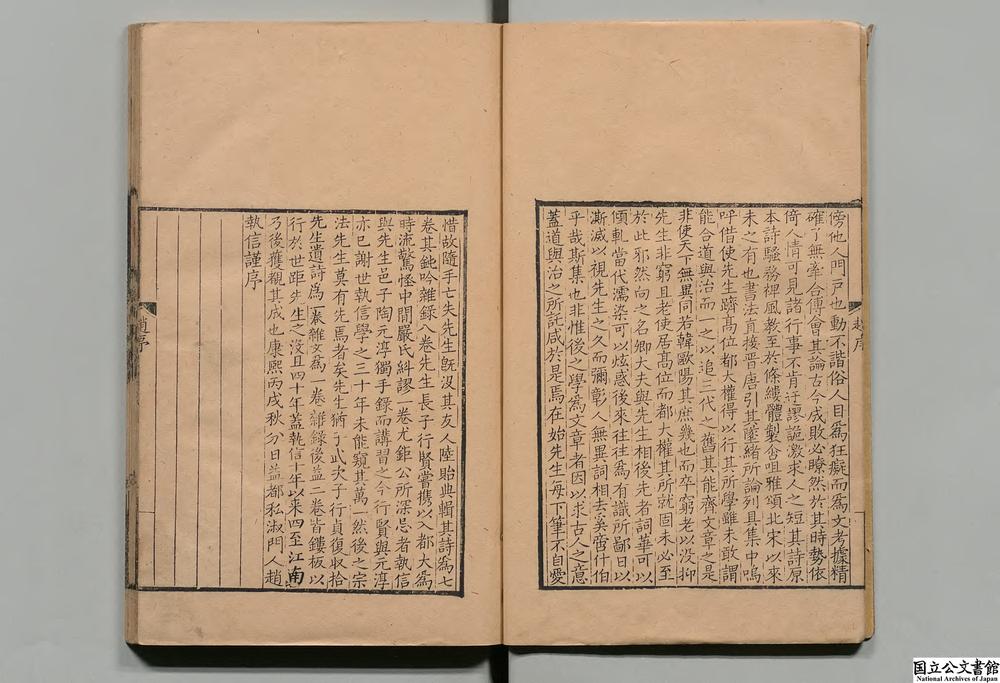 傍他人門戸也動不諧俗人目爲狂癡而爲文考據精
確了無牽合傅會其論古今成敗必瞭然於其時勢依
倚人情可見諸行事不肯迂謬詭激求人之短其詩原
本詩騷務裨風教至於條縷體製含咀雅頌北宋以來
未之有也書法直接晉唐引其墜緒所論列具集中嗚
呼借使先生躋髙位都大權得以行其所學雖未敢謂
能合道與治而一之以追三代之舊其能齊文章之是
非使天下無異同若韓歐陽其庶幾也而卒窮老以没抑
先生非窮且老使居髙位而都大權其所就固未必至
於此邪然向之名卿大夫與先生相後先者詞華可以
傾軋當代濡染可以炫惑後來往往爲有識所鄙日以
澌滅以視先生之久而彌彰人無異詞相去奚啻什伯
乎哉斯集也非惟後之學爲文章者因以求古人之意
蓋道與治之所託咸於是焉在始先生每下筆不自愛
趙序
惜故隨手亡失先生旣没其友人陸貽典輯其詩爲七
卷其鈍吟雜録八卷先生長子行賢嘗携以入都大爲
時流驚怪中間嚴氏糾謬一卷尤鉅公所深忌者執信
與先生邑子陶元淳獨手録而講習之今行賢與元淳
亦已謝世執信學之三十年未能窺其萬一然後之宗
法先生莫有先焉者矣先生猶子武次子行貞復收拾
先生遺詩爲一卷雜文爲一卷雜録後益二卷皆鏤板以
行於世距先生之没且四十年蓋執信十年以来四至江南
乃後獲觀其成也康熙丙戌秋分日益都私淑門人趙
執信謹序
趙序
国立公文書館
National Archives of Japan